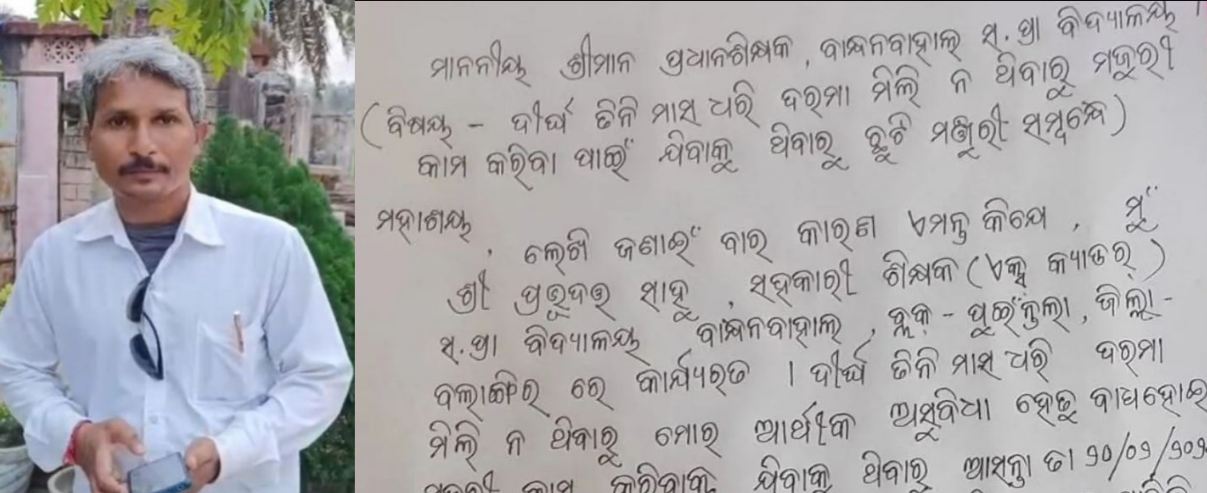 ମାନନୀୟ ଶ୍ରୀମାନ ପ୍ରଧାନଶିକ୍ଷକ, ବାନ୍ଧନବାହାଲ୍ ସ.ପ୍ରା ବିଦ୍ୟାଳୟ
(ବିଷୟ - ଦୀର୍ଘ ତିନି ମାସ ଧରି ଦରମା ମିଳି ନ ଥିବାରୁ ମଜୁରୀ
କାମ କରିବା ପାଇଁ ଯିବାକୁ ଥିବାରୁ ଛୁଟି ମଞ୍ଜୁରୀ ସମ୍ବନ୍ଧେ)
ମହାଶୟ,
ଲେଖି ଜଣାଇଁ ବାର କାରଣ ଏମନ୍ତ କିଯେ, ମୁଁ
ଶ୍ରୀ ପ୍ରଭୁଦତ୍ତ ସାହୁ, ସହକାରୀ ଶିକ୍ଷକ (ଏକ୍ସ କ୍ୟାଡର୍)
ସ.ପ୍ରା ବିଦ୍ୟାଳୟ ବାନ୍ଧନବାହାଲ୍, ବ୍ଲକ୍ - ପୁଇଁନ୍ତଲା, ଜିଲ୍ଲା-
ବଲାଙ୍ଗିର ରେ କାର୍ଯ୍ୟରତ । ଦୀର୍ଘ ତିନି ମାସ ଧରି ଦରମା
ମିଳି ନ ଥିବାରୁ ମୋର ଆର୍ଥୀକ ଅସୁବିଧା ହେତୁ ବାଧହୋଇ
କାମ କରିବାକୁ ଯିବାକୁ ଥିବାରୁ ଆସନ୍ତା ତା ୨୦/୦୨/୨୦୨